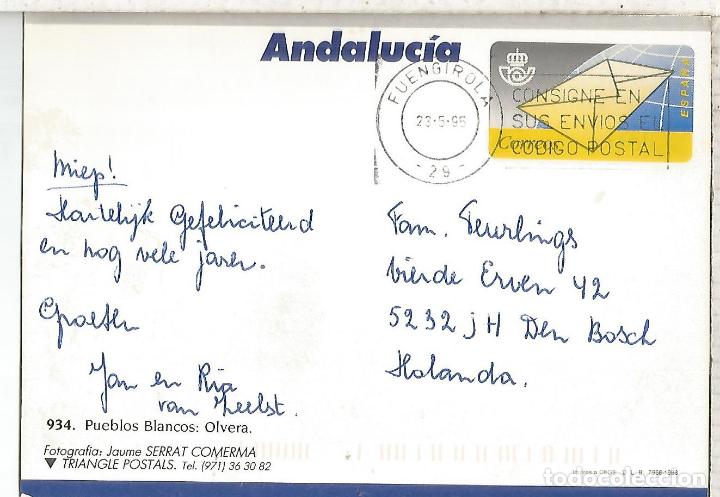 Andalucía
FUENGIROLA
23-5-95
-29-
CONSIGNE EN
SUS ENVIOS EL
CODIGO POSTAL
Correos
ESPAÑA
Miep!
Hartelijk Gefeliciteerd
en nog vele jaren.
Groeten
Jan en Ria
van Zeelst.
Fam. Teurlings
Vierde Erven 42
5232 JH Den Bosch
Holanda.
934. Pueblos Blancos: Olvera.
Fotografía: Jaume SERRAT COMERMA
▼ TRIANGLE POSTALS. Tel. (971) 36 30 82
todocoleccion